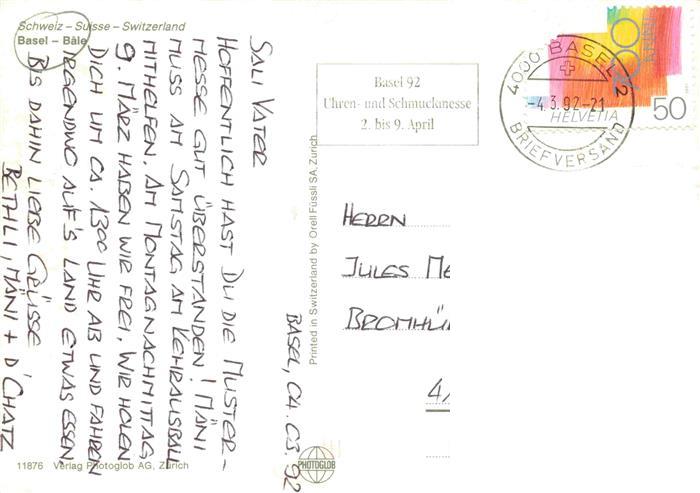 Schweiz – Suisse – Switzerland
Basel – Bâle
SALI VATER
HOFFENTLICH HAST DU DIE MUSTER-
MESSE GUT ÜBERSTANDEN! MÄNI
MUSS AM SAMSTAG AM KEHRAUSBALL
MITHELFEN. AM MONTAGNACHMITTAG,
9. MÄRZ HABEN WIR FREI, WIR HOLEN
DICH UM CA. 1300 UHR AB UND FAHREN
IRGENDWO AUF'S LAND ETWAS ESSEN.
BIS DAHIN LIEBE GRÜSSE
BETHLI, MÄNI + D'CHATZ
BASEL, 04.03.92
11876 Verlag Photoglob AG, Zürich
PHOTOGLOB
Printed in Switzerland by Orell Füssli SA, Zürich
Basel 92
Uhren- und Schmuckmesse
2. bis 9. April
4000 BASEL 2
-4.3.92-21
BRIEFVERSAND
700
HELVETIA
50
HERRN
JULES ME
BROMHÜ